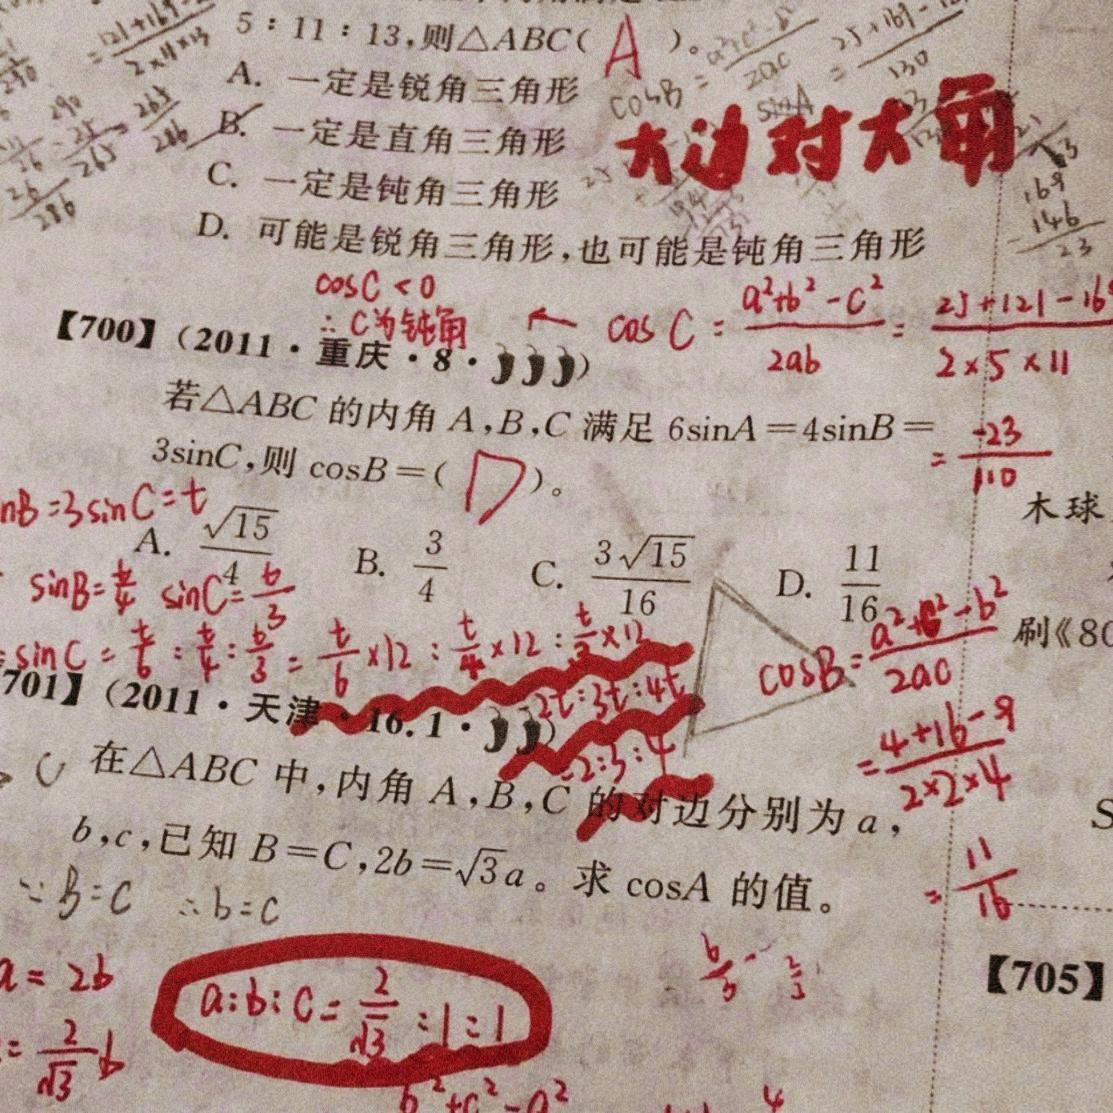 5:11:13,则△ABC( A )。
A. 一定是锐角三角形
B. 一定是直角三角形
C. 一定是钝角三角形
D. 可能是锐角三角形,也可能是钝角三角形
大边对大角
cosB = a²+c²-b² / 2ac
cosC<0
∴C为钝角 ← cosC = a²+b²-c² / 2ab = 25+121-169 / 2×5×11
= -23 / 110
【700】(2011·重庆·8·)
若△ABC 的内角 A,B,C 满足 6sinA=4sinB=
3sinC,则 cosB=( D )。
nB=3sinC=t
A. √15/4 B. 3/4 C. 3√15/16 D. 11/16
sinB=t/4 sinC=t/3
=sinC = t/6 : t/4 : t/3 = t/6×12 : t/4×12 : t/3×12
2t:3t:4t
=2:3:4
cosB = a²+c²-b² / 2ac
= 4+16-9 / 2×2×4
= 11/16
701】(2011·天津·16.1·)
在△ABC 中,内角 A,B,C 的对边分别为 a,
b,c,已知 B=C,2b=√3a。求 cosA 的值。
∵B=C ∴b=c
a=2b
= 2/√3 b
a:b:c= 2/√3 :1:1
b²+c²-a²
木球
刷《80
【705】